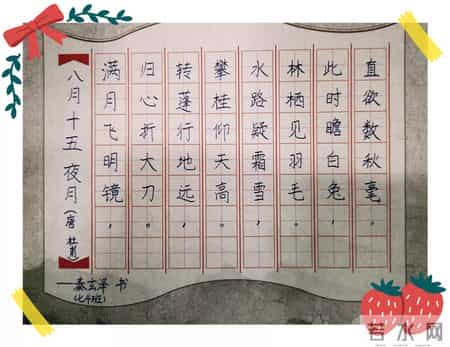 八月十五夜月(唐 杜甫)
满月飞明镜，
归心折大刀。
转蓬行地远，
攀桂仰天高。
水路疑霜雪，
林栖见羽毛。
此时瞻白兔，
直欲数秋毫。
——秦玄泽 书
若水网